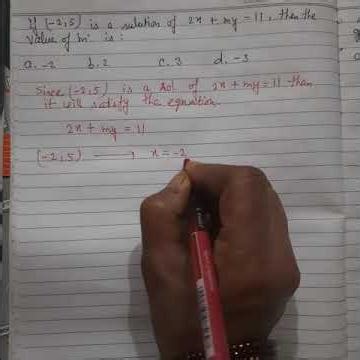 If (-2,5) is a solution of 2x + my = 11, then the
value of 'm' is :
a. -2 b. 2 c. 3 d. -3
Since (-2,5) is a sol. of 2x + my = 11 then
it will satisfy the equation.
2x + my = 11
(-2,5) ⟶ x = -2